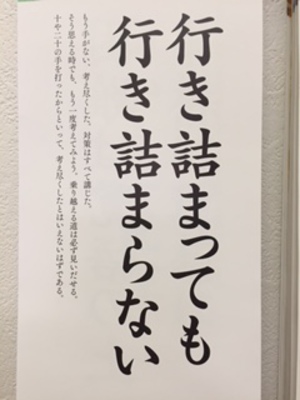 行き詰まっても
行き詰まらない
もう手がない、考え尽くした、対策はすべて講じた。
そう思える時でも、もう一度考えてみよう。乗り越える道は必ず見いだせる。
十や二十の手を打ったからといって、考え尽くしたとはいえないはずである。